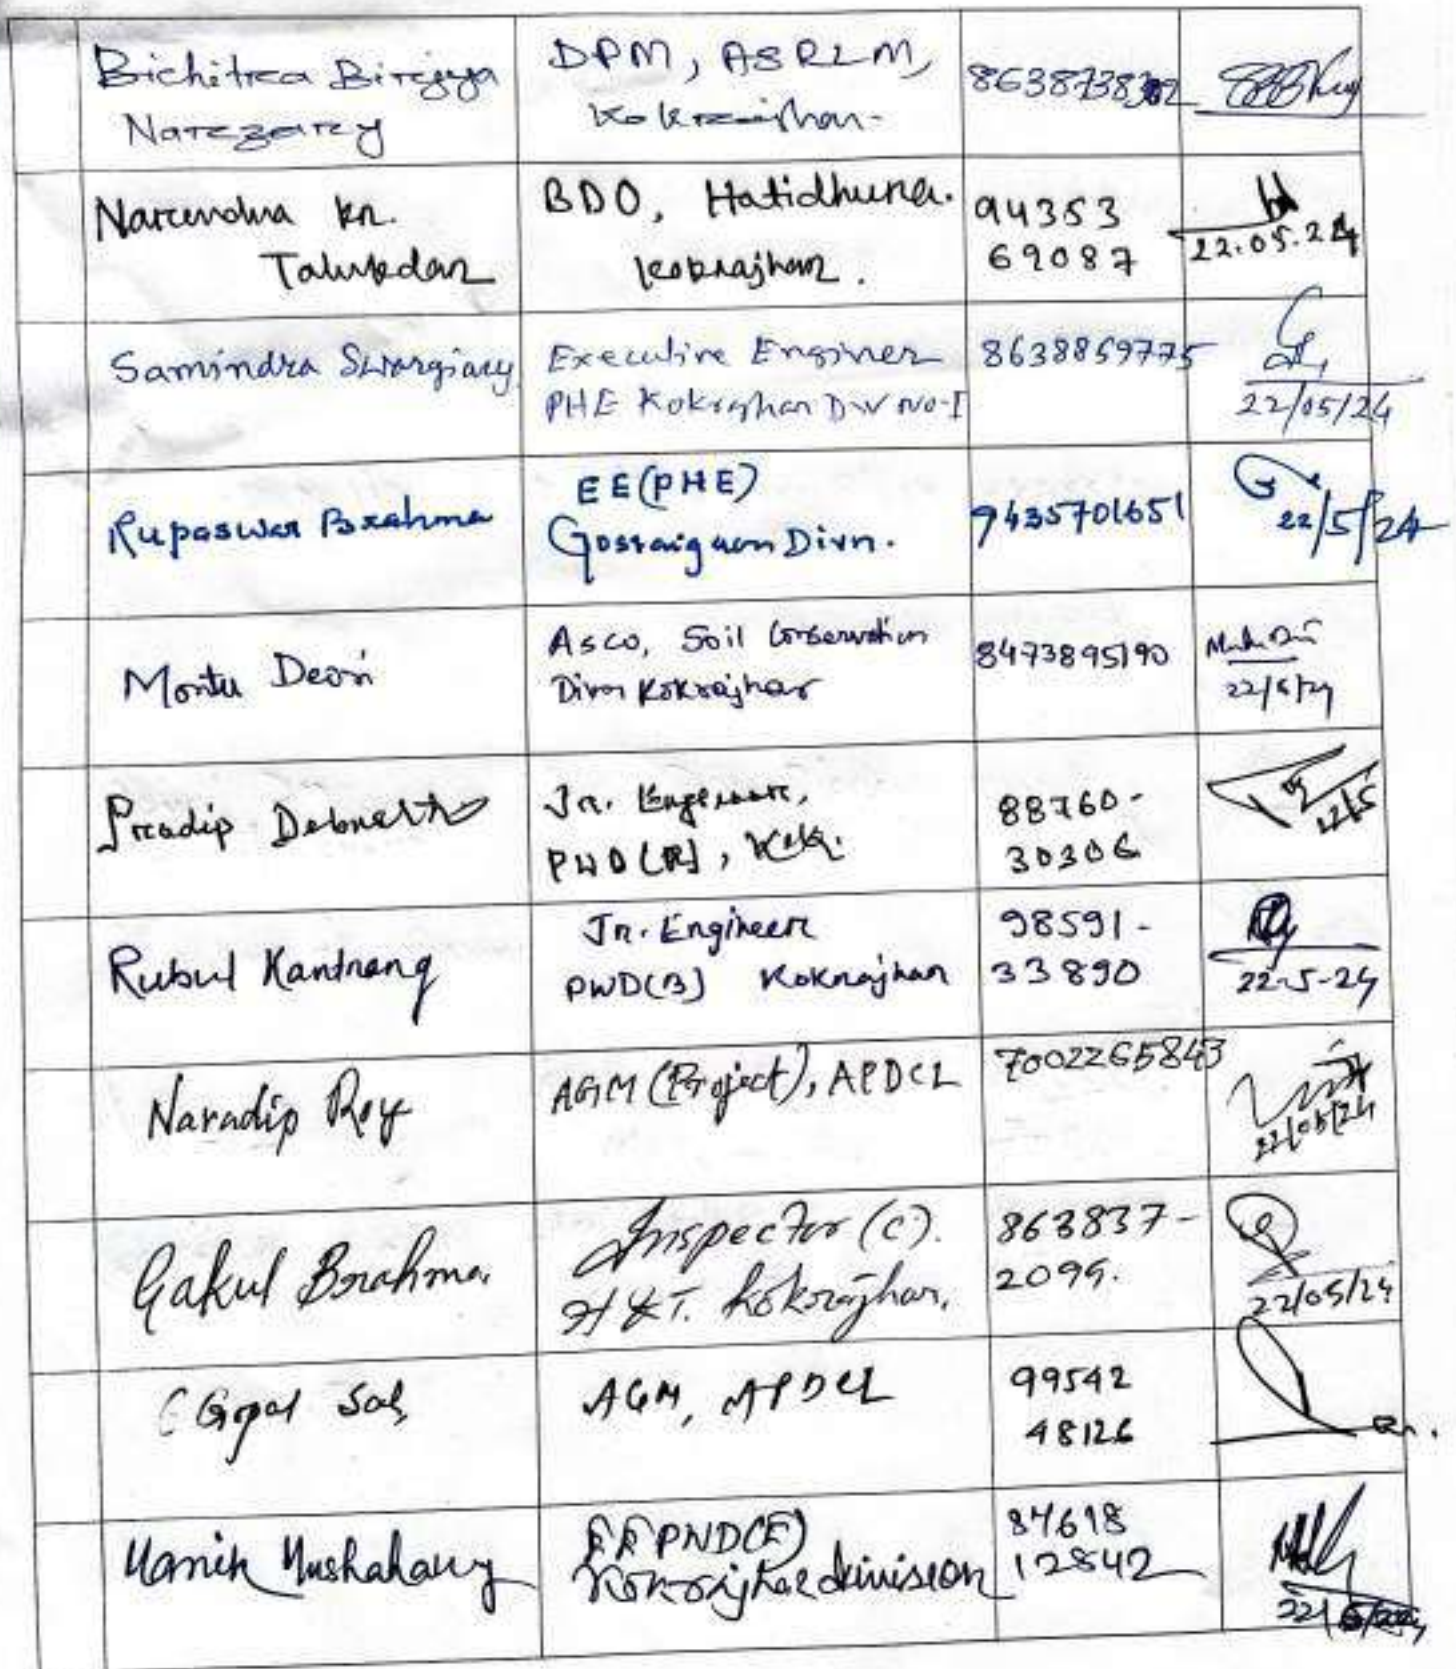 Bichitra Birjya
Narzary
DPM, ASRLM,
Kokrajhar
Narendra Kr.
Talukdar
BDO, Hatidhura.
Kokrajhar.
94353
69087
22.05.24
Samindra Swargiary
Executive Enginer
PHE Kokrajhar Div No-I
8638859775
22/05/24
Rupaswar Brahma
EE(PHE)
Gossaigaon Divn.
9435701651
22/5/24
Montu Deori
ASCO, Soil Conservation
Divn Kokrajhar
8473895190
22/5/24
Pradip Debnath
Jr. Engineer,
PWD(R), Kok.
88760-
30306
22/5
Rubul Kantrang
Jr. Engineer
PWD(B) Kokrajhar
98591-
33890
22-5-24
Naradip Roy
AGM (Project), APDCL
7002265843
22/05/24
Gakul Brahma
Inspector (C).
H&T. Kokrajhar.
863837-
2099.
22/05/24
Gopal Sah
AGM, APDCL
99542
48126
Manik Mushahary
EE PWD(F)
Kokrajhar division
84618
12842
22/5/24